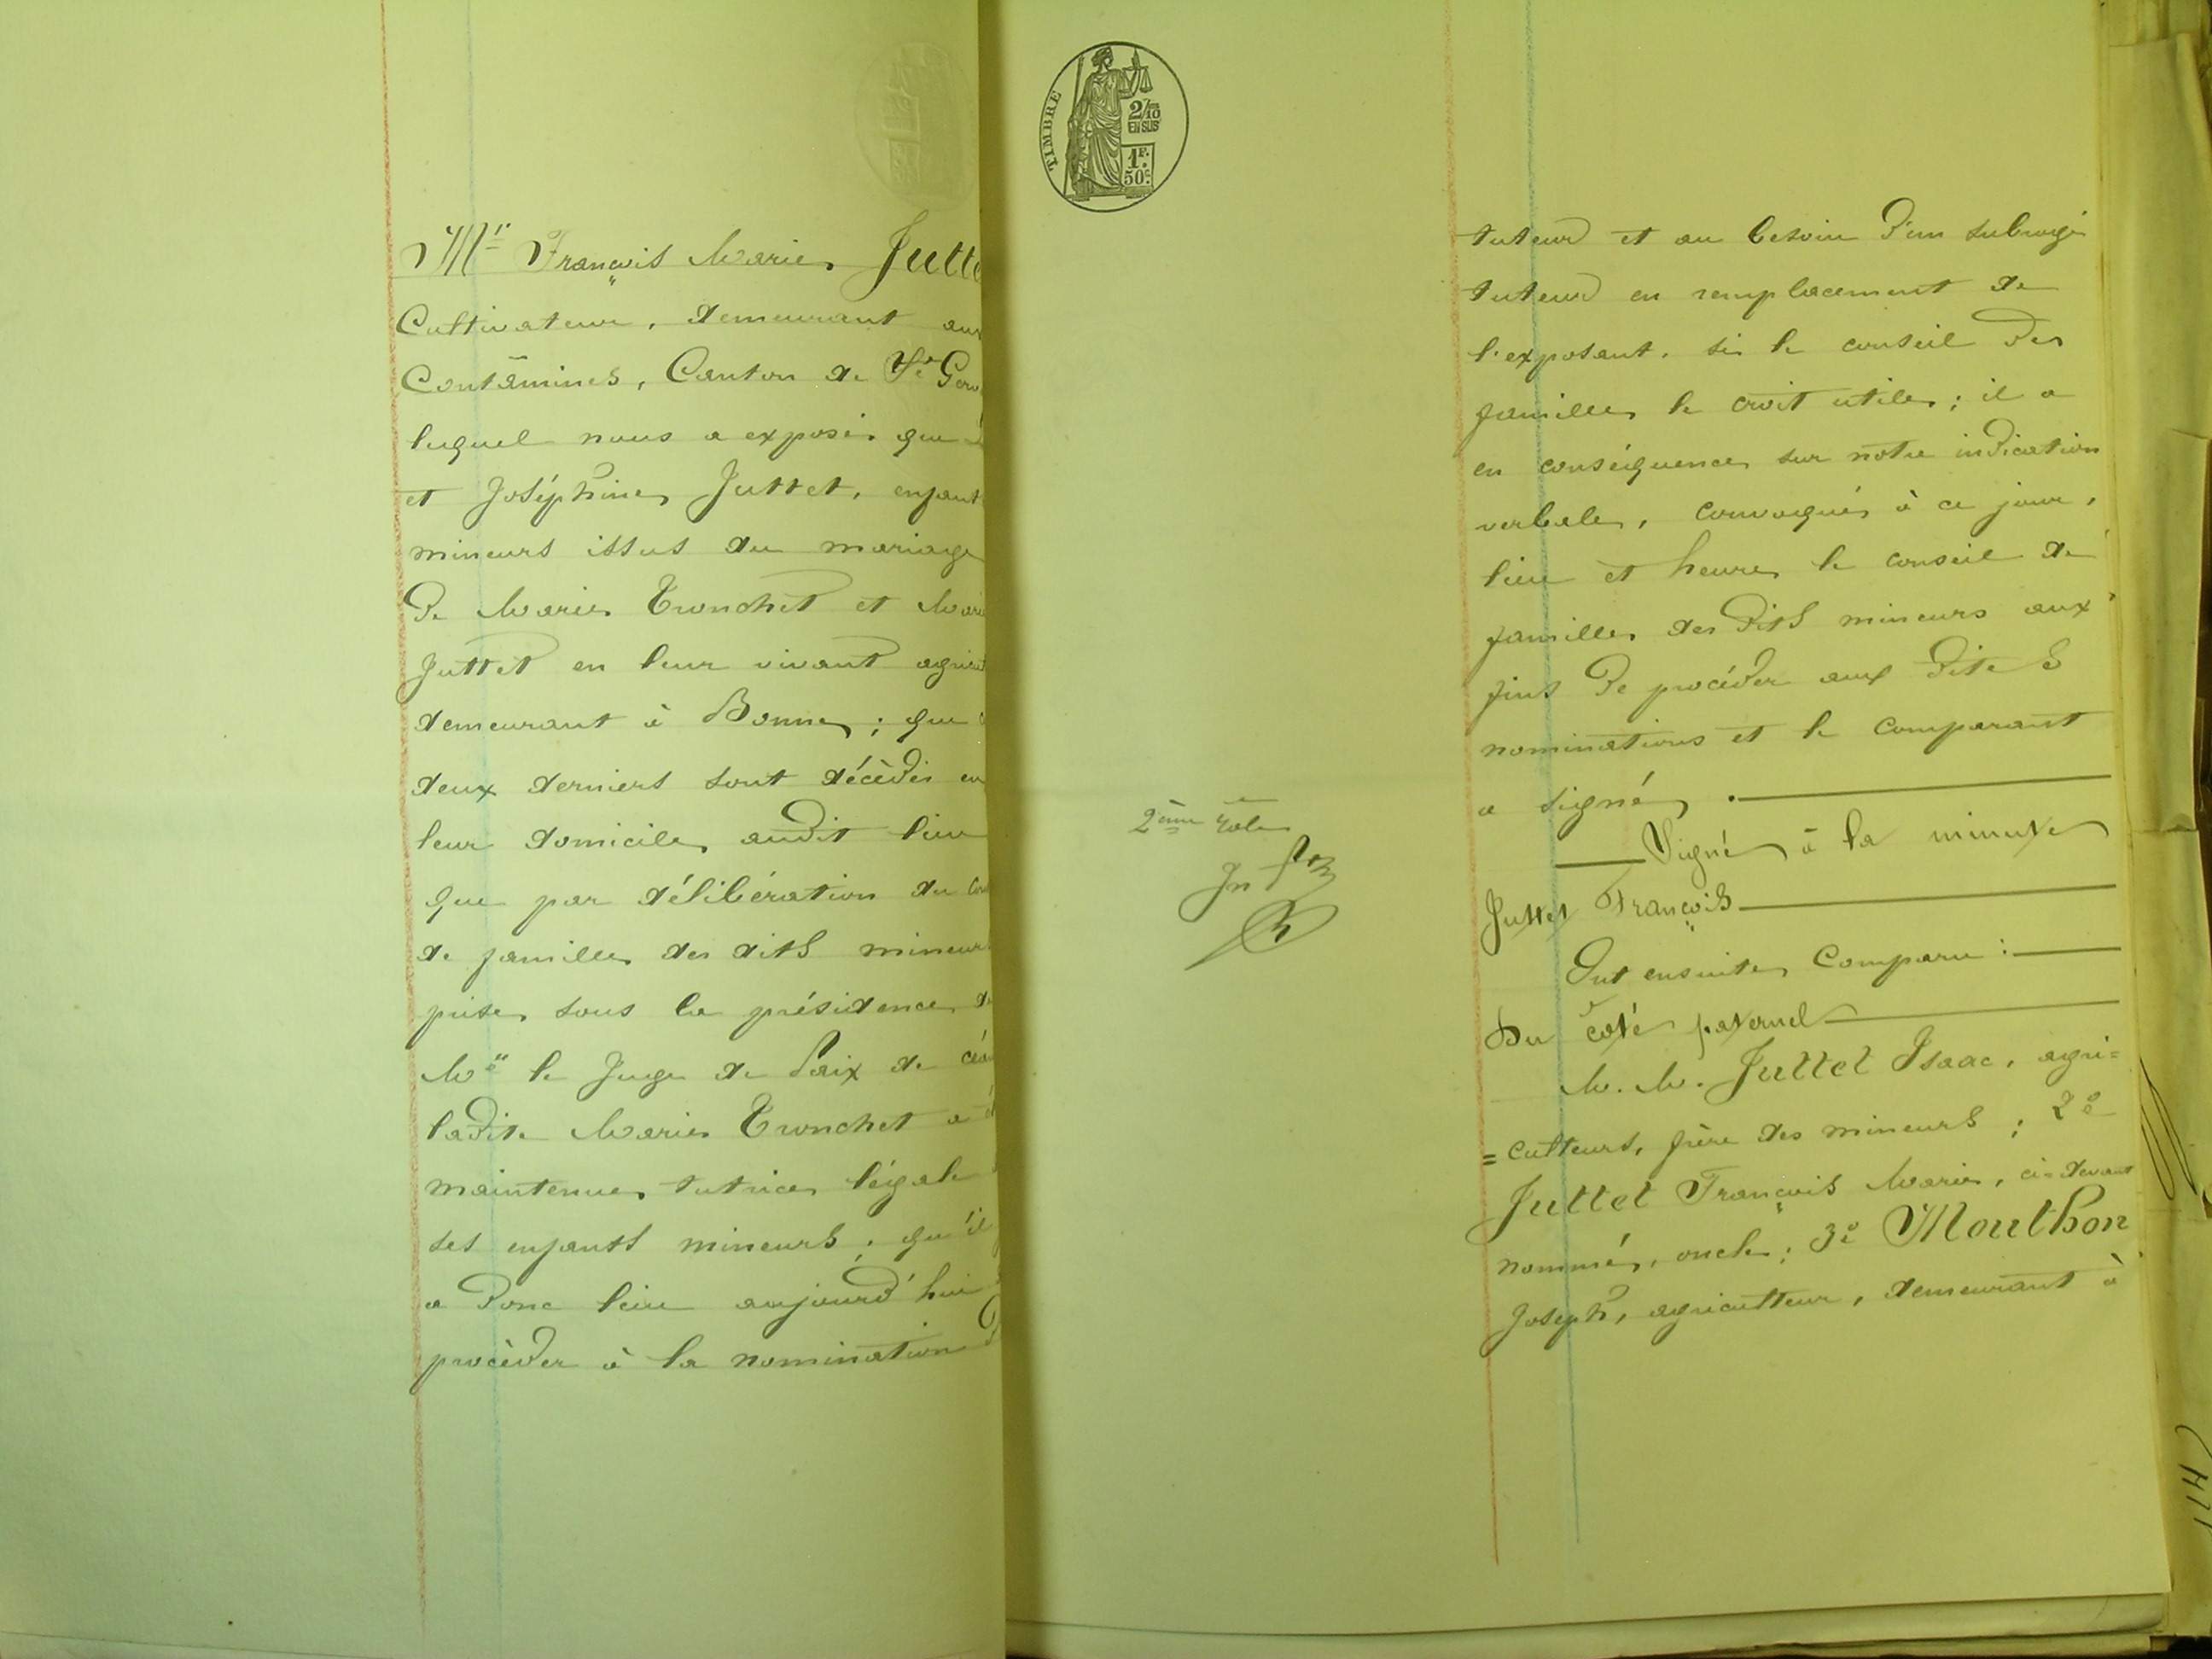 Mr François Marie Jutte
Cultivateur, demeurant aux
Contamines, Canton de St Gerv
lequel nous a exposé que
et Joséphine Juttet, enfants
mineurs issus du mariage
de Marie Tronchet et Marie
Juttet en leur vivant agricul
demeurant à Bonne ; que
deux derniers sont décédés en
leur domicile audit lieu
que par délibération du con
de famille des dits mineurs
prise sous la présidence de
Mr le Juge de Paix de céan
ladite Marie Tronchet a é
maintenue tutrice légale
ses enfants mineurs ; qu'il
a donc lieu aujourd'hui
procéder à la nomination d
TIMBRE
2/10
EN SUS
1F.
50c.
2ème rôle
tuteur et au besoin d'un subrogé
tuteur en remplacement de
l'exposant, si le conseil de
famille le croit utile ; il a
en conséquence sur notre indication
verbale, convoqué à ce jour,
lieu et heure le conseil de
famille des dits mineurs aux
fins de procéder aux dites
nominations et le comparant
a signé.
Signé à la minute
Juttet François
Ont ensuite Comparu :
Du côté paternel
M. M. Juttet Isaac, agri=
=culteurs, frère des mineurs ; 2e
Juttet François Marie, ci-devant
nommé, oncle ; 3e Mouthon
Joseph, agriculteur, demeurant à